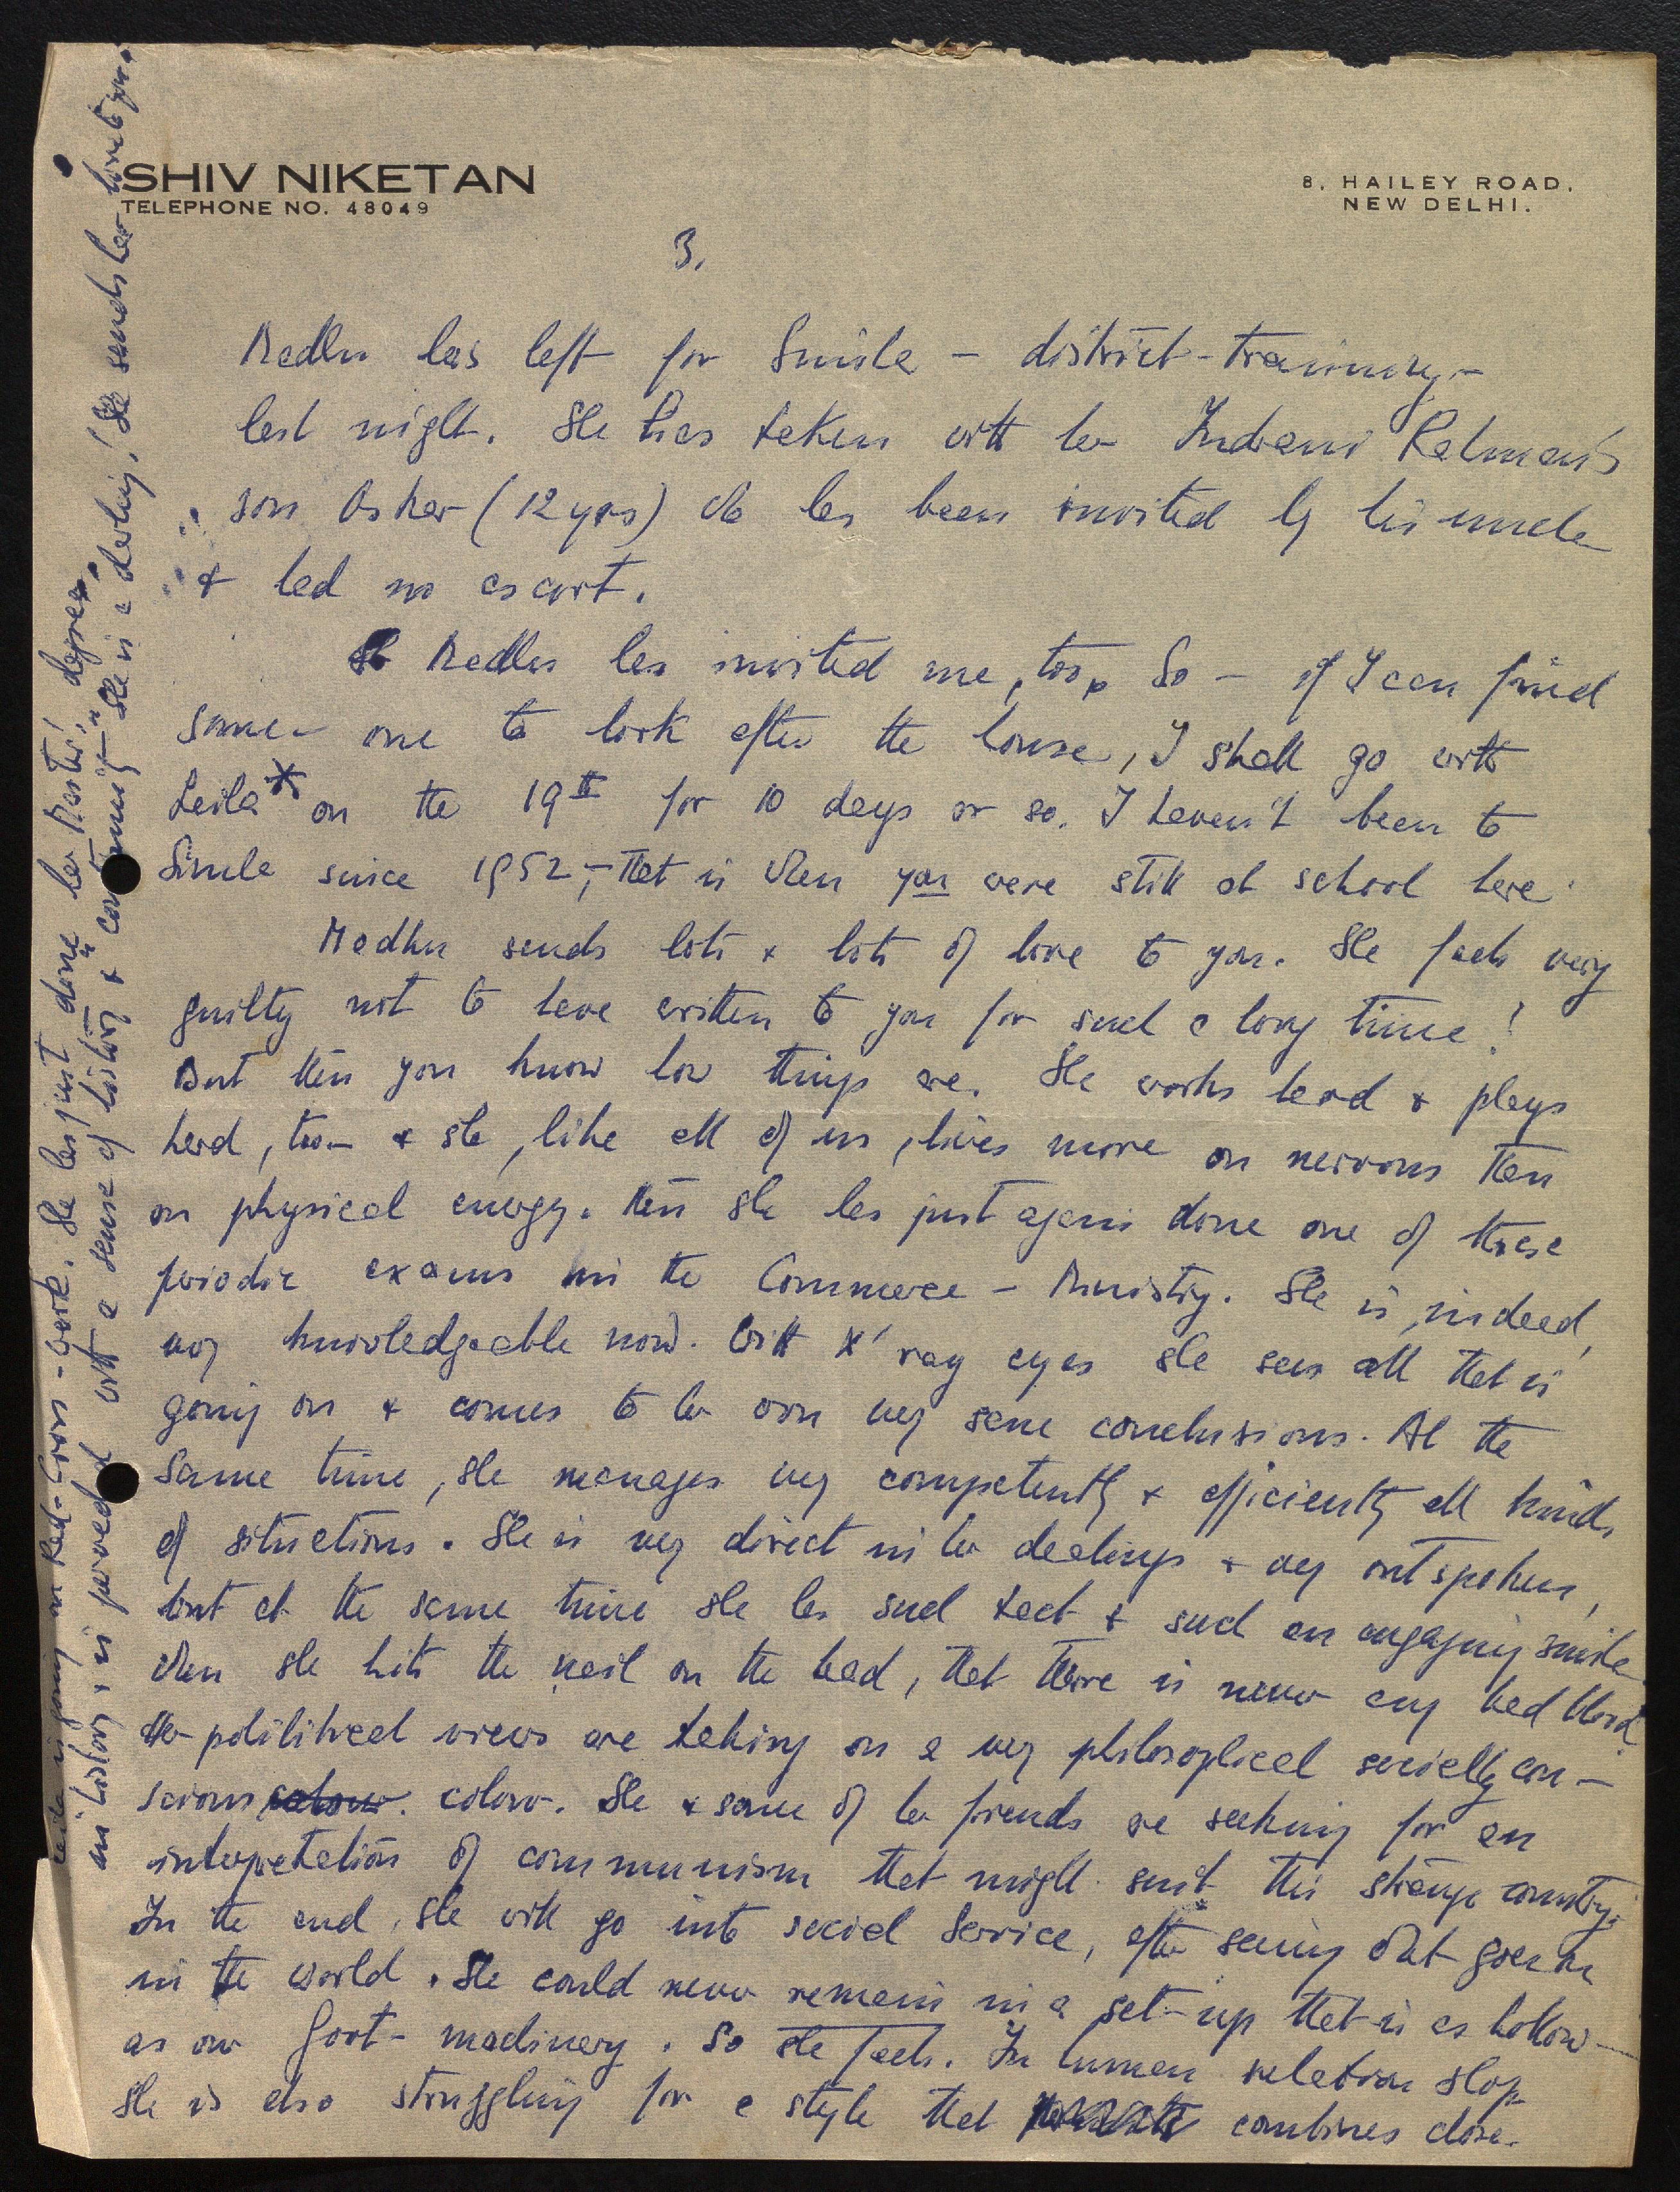 SHIV NIKETAN
TELEPHONE NO. 48049
8, HAILEY ROAD,
NEW DELHI.
3.
Madhu has left for Simla – district-training –
last night. She has taken with her Indrani Rahman's
son Asher (12 yrs) who has been invited by his uncle
& had no escort.
Madhu has invited me, too. So – if I can find
some- one to look after the house, I shall go with
Leila* on the 19th for 10 days or so. I haven't been to
Simla since 1952, – that is when you were still at school here.
Madhu sends lots & lots of love to you. She feels very
guilty not to have written to you for such a long time!
But then you know how things are. She works hard & plays
hard, too – & she, like all of us, lives more on nervous than
on physical energy. Then she has just again done one of these
periodic exams in the Commerce – Ministry. She is, indeed,
very knowledgeable now. With X'ray eyes she sees all that is
going on & comes to her own very sane conclusions. At the
same time, she manages very competently & efficiently all kinds
of situations. She is very direct in her dealings & very outspoken,
but at the same time she has such tact & such an engaging smile
when she hits the nail on the head, that there is never any bad blood.
Her political views are taking on a very philosophical socially con-
scious colour. colour. She & some of her friends are seeking for an
interpretation of communism that might suit this strange country.
In the end, she will go into social Service, after seeing what goes on
in the world. She could never remain in a set-up that is as hollow
as our Govt- machinery. So she feels. In human relation ship
she is also struggling for a style that combines close-
Leila is going in Red-Cross-work. She has just done her Master's degree
in history & is pervaded with a sense of history & continuity. She is a darling! She sends her love to you.